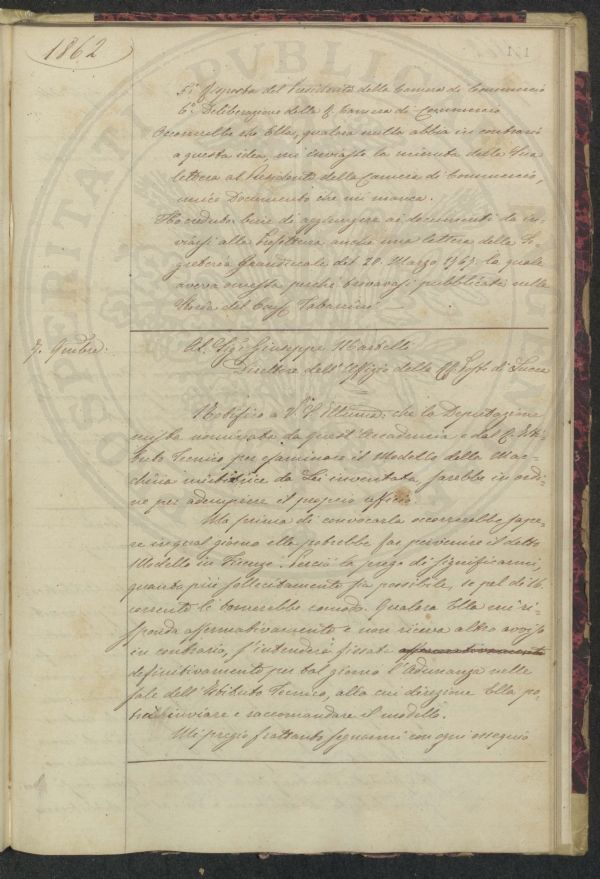 1862
5.° Risposta del Presidente della Camera di Commercio
6.° Deliberazione della R. Camera di Commercio
Occorrerebbe che Ella, qualora nulla abbia in contrario
a questa idea, mi inviasse la minuta della Sua
lettera al Presidente della Camera di Commercio,
unico Documento che mi manca.
Ho creduto bene di aggiungere ai documenti da in-
viarsi alla Prefettura anche una lettera della Se-
greteria Granducale del 20. Marzo la quale
aveva omessa perchè trovavasi pubblicata nella
Storia del Tabarrini
7. 9mbre:
Al Sig: Giuseppe Martelli
Direttore dell'Uffizio delle RR. Poste di Lucca
Notifico a V. S. Illma. che la Deputazione
mista nominata da quest'Accademia e dal R. Isti-
tuto Tecnico per esaminare il Modello della Mac-
china da Lei inventata sarebbe in ordi-
ne per adempiere il proprio officio.
Ma prima di convocarla occorrerebbe sape-
re in qual giorno ella potrebbe far pervenire il detto
Modello in Firenze. Perciò la prego di significarmi,
quanto più sollecitamente sia possibile, se pel dì 16
corrente le tornerebbe comodo. Qualora Ella mi ri-
sponda affermativamente e non riceva altro avviso
in contrario, s'intenderà fissata affermativamente
definitivamente per tal giorno l'Adunanza nelle
sale dell'Istituto Tecnico, alla cui direzione Ella po-
trà inviare e raccomandare il modello.
Mi pregio frattanto segnarmi con ogni ossequio